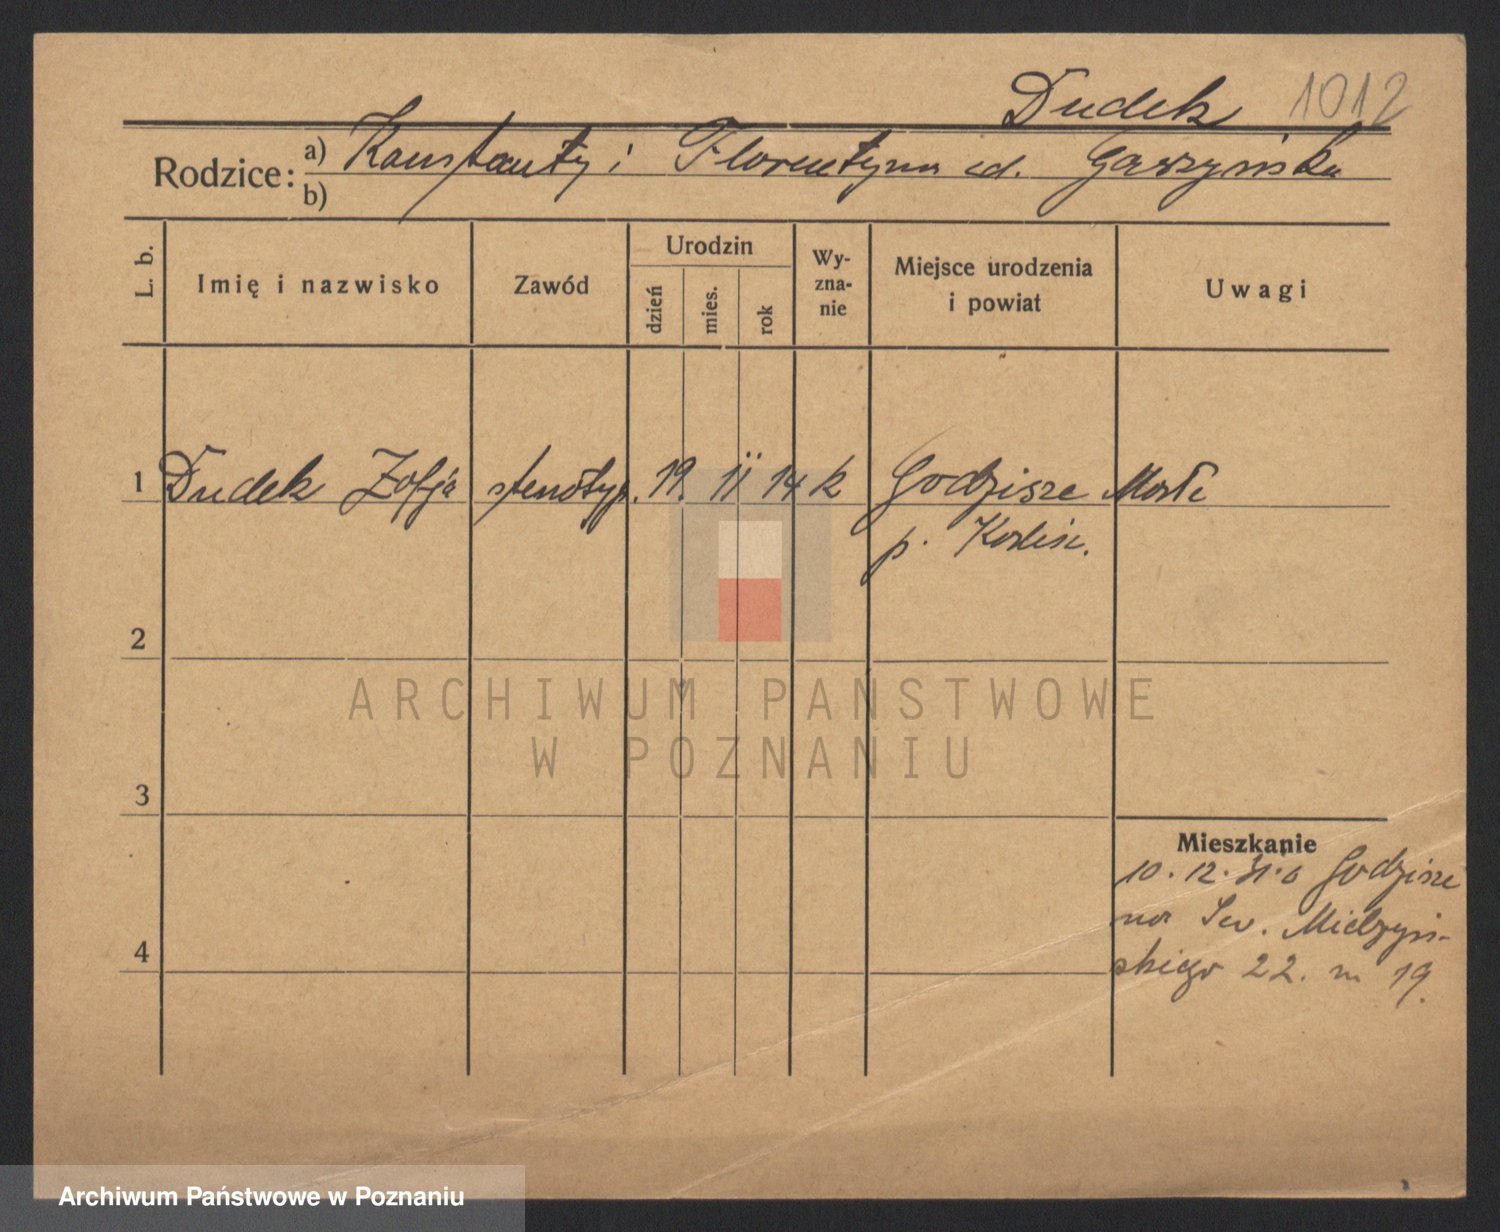 Dudek 1012
Rodzice: a) Konstanty i Florentyna cd.
b)
L. b.
Imię i nazwisko
Zawód
Urodzin
dzień
mies.
rok
Wy-
zna-
nie
Miejsce urodzenia
i powiat
Uwagi
1 Dudek Zofja stenotyp. 19. II 14 k Godzisze
p.
2
3
4
Mieszkanie
10. 12. Godzisze
na Sew. Mielżyń-
skiego 22. m 19.
ARCHIWUM PAŃSTWOWE
W POZNANIU
Archiwum Państwowe w Poznaniu